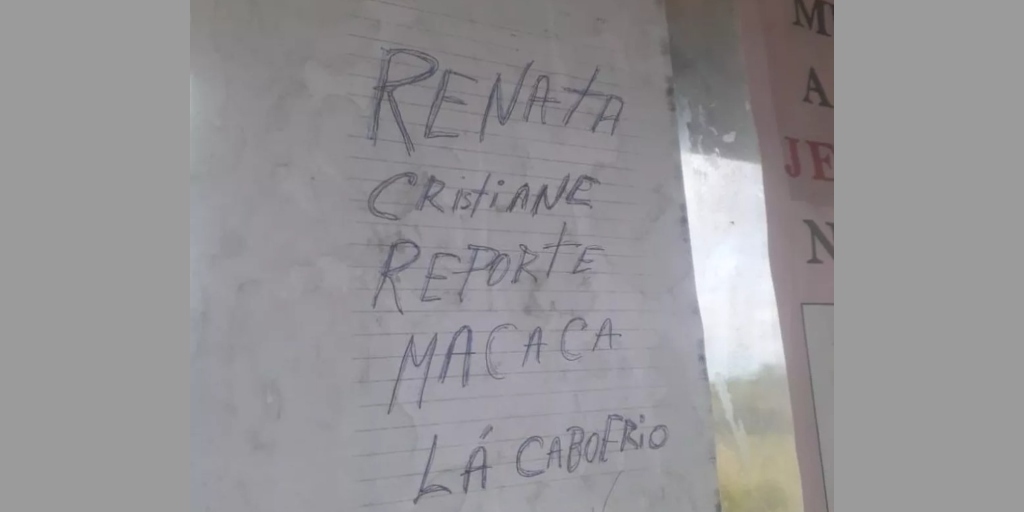 RENAtA
CRistiANE
REPORtE
MACACA
LÁ CABOFRiO
M
A
JE
N